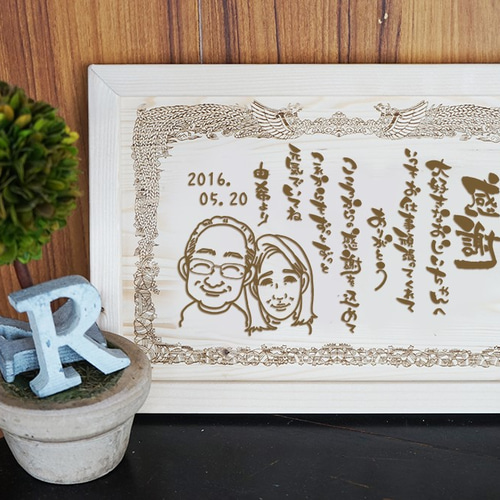 感謝
大好きなおじいちゃんへ
いつもお仕事頑張ってくれて
ありがとう
こころから感謝を込めて
これからもずっとずっと
元気でいてね
由希より
2016.
05.20
R